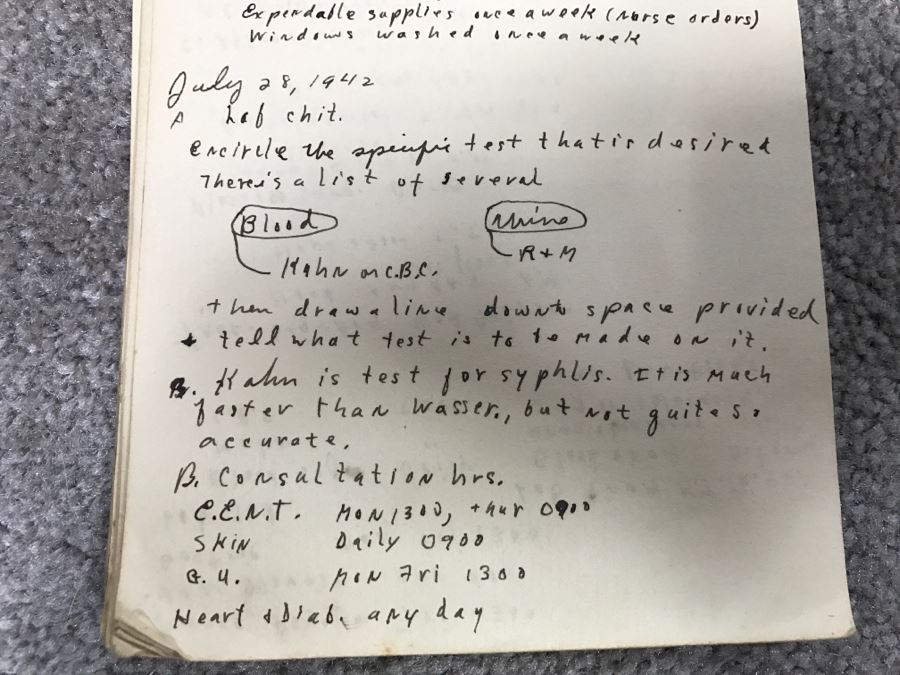 Expendable supplies once a week (nurse orders)
Windows washed once a week
July 28, 1942
A Lab chit.
encircle the specific test that is desired
There's a list of several
Blood Urine
Kahn or C.B.C. R + M
then draw a line down to space provided
+ tell what test is to be made on it.
B. Kahn is test for syphlis. It is much
faster than Wasser., but not quite so
accurate.
B. Consultation hrs.
E.E.N.T. Mon 1300, thur 0900
Skin Daily 0900
G.U. Mon Fri 1300
Heart + Diab. any day